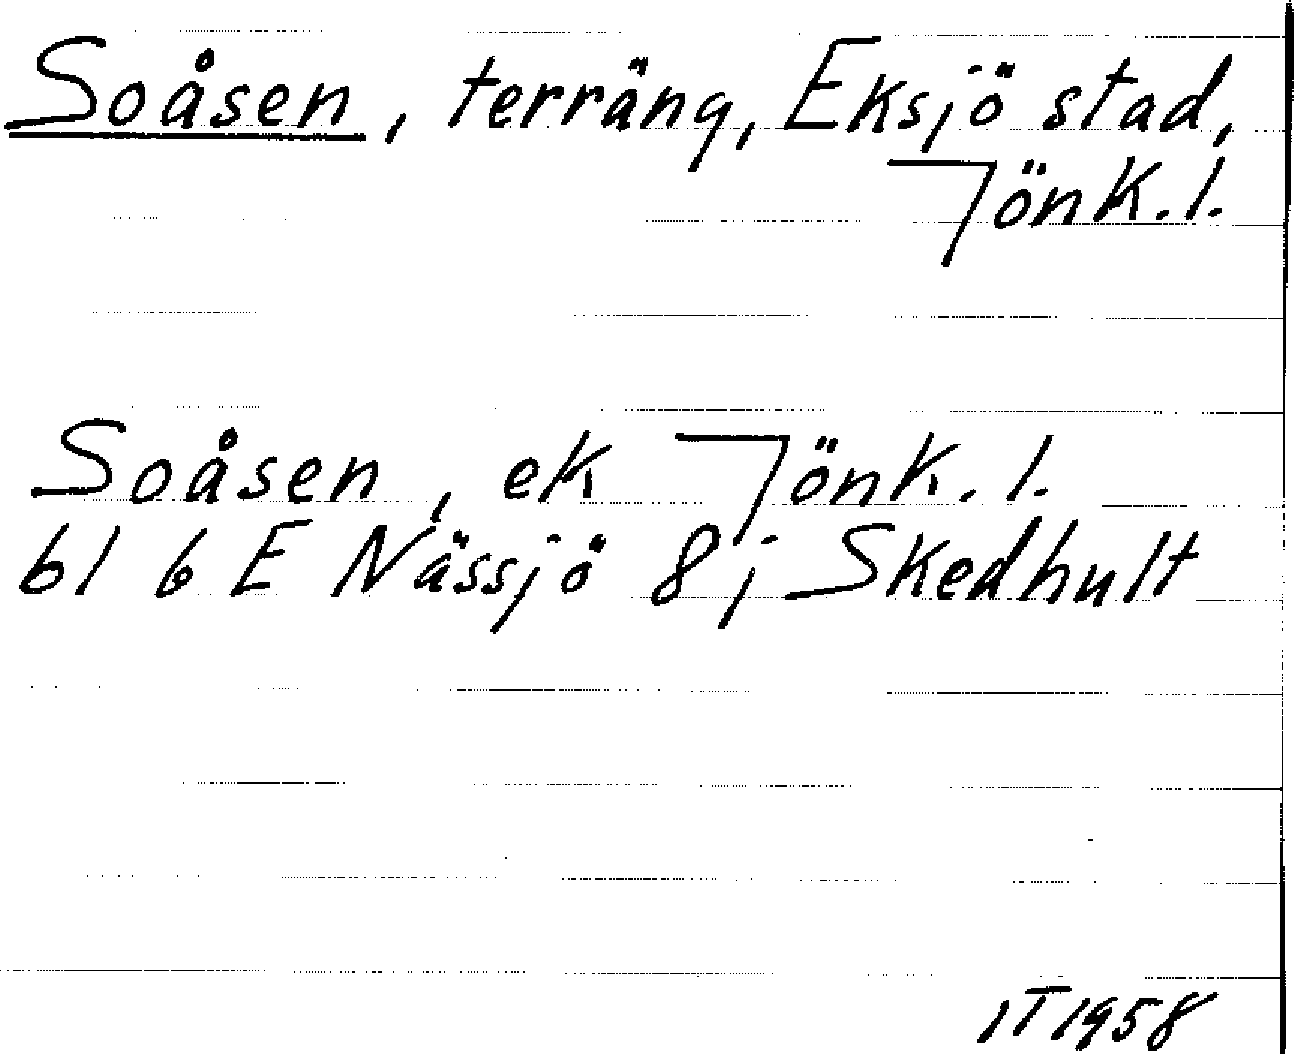 Soåsen, terräng, Eksjö stad,
Jönk. l.
Soåsen, ek Jönk. l.
bl 6 E Nässjö 8 j Skedhult
IT 1958